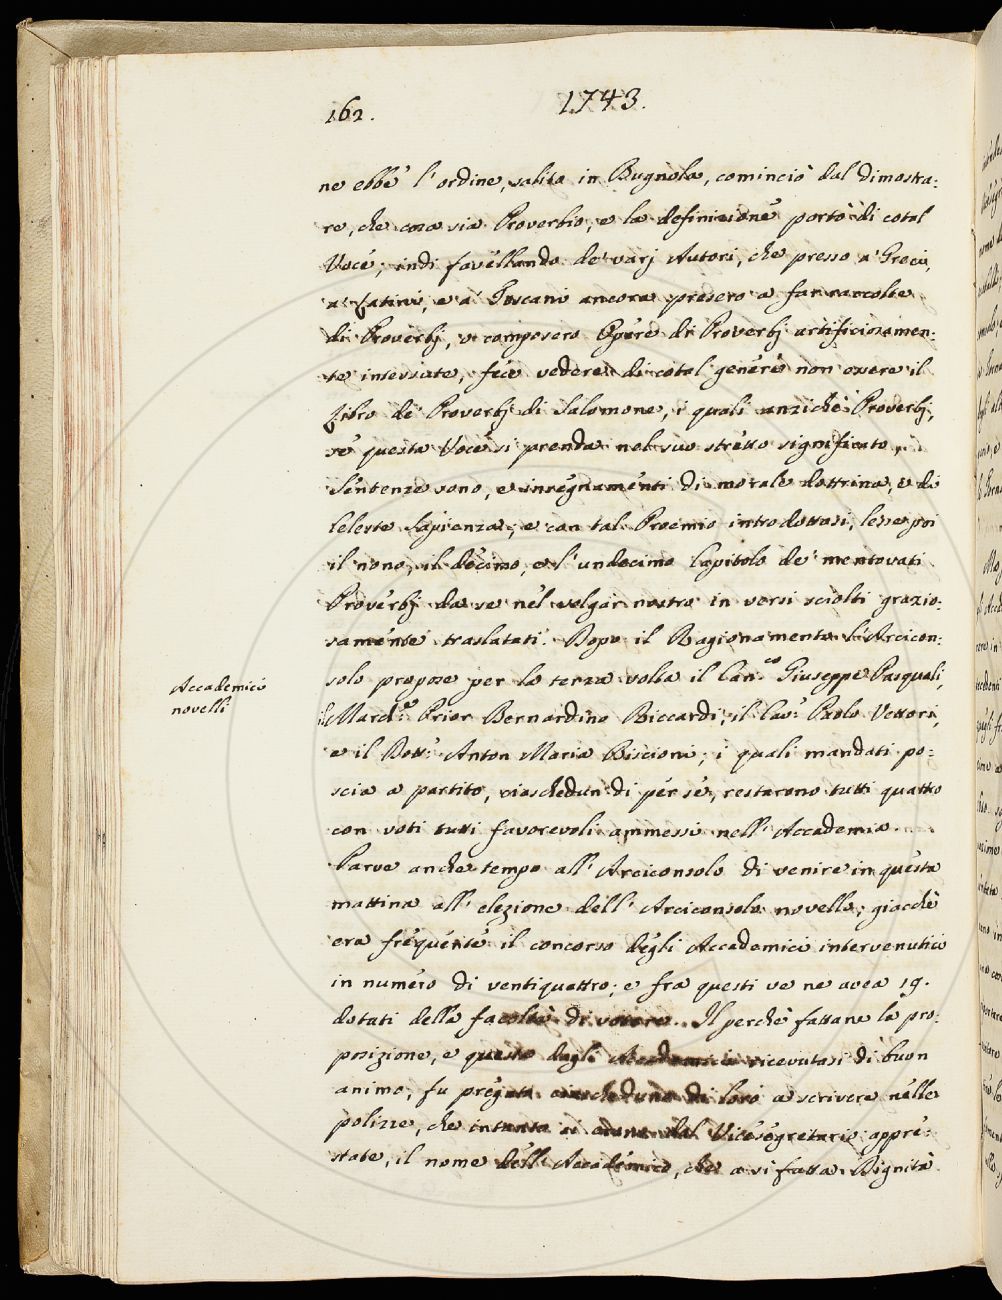 162.
1743.
ne ebbe l'ordine, salito in Bugnola, cominciò dal dimostra:
re, che cosa sia Proverbio, e la definizione portò di cotal
Voce; indi favellando de' varj Autori, che presso a' Greci,
a' Latini, e a' Toscani ancora presero a far raccolte
di Proverbj, o composero Opere di Proverbj artificiosamen:
te intessute, fece vedere di cotal genere non essere il
Libro de' Proverbj di Salomone, i quali anziche Proverbj,
se questa Voce si prenda nel suo stretto significato,
Sentenze sono, e insegnamenti di morale dottrina, e di
Celeste Sapienza; e con tal Proemio introdottosi, lesse poi
il nono, il decimo, e l'undecimo Capitolo de' mentovati
Proverbj da se nel volgar nostro in versi sciolti grazio:
samente traslatati. Dopo il Ragionamento l'Arcicon:
solo propose per la terza volta il Can.co Giuseppe Pasquali,
Accademici
novelli
il March.e Prior Bernardino Riccardi, il Cav: Paolo Vettori,
e il Dott: Anton Maria Biscioni; i quali mandati po:
scia a partito, ciaschedun di per sè, restarono tutti quattro
con voti tutti favorevoli ammessi nell'Accademia.
Parve anche tempo all'Arciconsolo di venire in questa
mattina all'elezione dell'Arciconsolo novello; giacchè
era frequente il concorso degli Accademici intervenutici
in numero di ventiquattro; e fra questi ve ne avea 19.
dotati della facoltà di votare. Il perchè fattane la pro:
posizione, e questa dagli Accademici ricevutasi di buon
animo, fu pregato ciascheduno di loro a scrivere nelle
polizze, che intanto si erano dal Vicesegretario appre:
state, il nome dell'Accademico, che a sì fatta Dignità